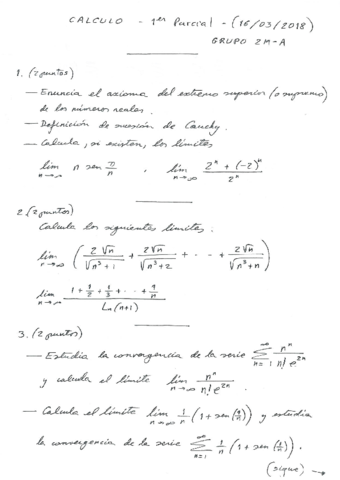 CALCULO - 1er Parcial - (16/03/2018)
GRUPO 2M-A
1. (2 puntos)
- Enuncia el axioma del extremo superior (o supremo)
de los números reales.
- Definición de sucesión de Cauchy.
- Calcula, si existen, los límites
lim n→∞ n sen π/n , lim n→∞ (2^n + (-2)^n)/2^n
2. (2 puntos)
Calcula los siguientes límites.
lim n→∞ (2√n/√(n³+1) + 2√n/√(n³+2) + · · · + 2√n/√(n³+n))
lim n→∞ (1 + 1/2 + 1/3 + · · · + 1/n)/Ln(n+1)
3. (2 puntos)
- Estudia la convergencia de la serie ∑ n=1 ∞ n^n/(n! e^(2n))
y calcula el límite lim n→∞ n^n/(n! e^(2n))
- Calcula el límite lim n→∞ 1/n (1 + sen(1/n)) y estudia
la convergencia de la serie ∑ n=1 ∞ 1/n (1 + sen(1/n)).
(sigue) →